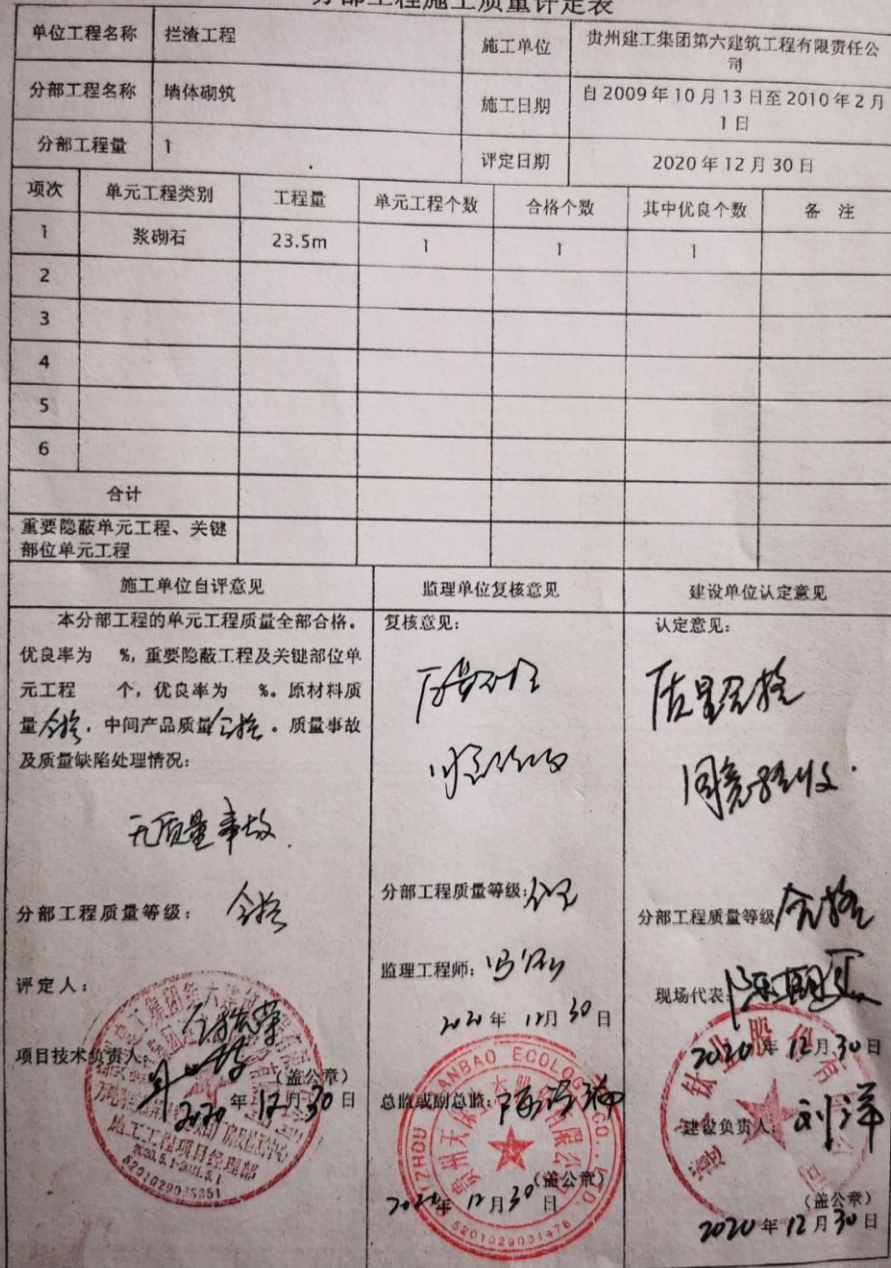 分部工程施工质量评定表
单位工程名称 拦渣工程 施工单位 贵州建工集团第六建筑工程有限责任公
司
分部工程名称 墙体砌筑 施工日期 自2009年10月13日至2010年2月
1日
分部工程量 1 评定日期 2020年12月30日
项次 单元工程类别 工程量 单元工程个数 合格个数 其中优良个数 备 注
1 浆砌石 23.5m 1 1 1
2
3
4
5
6
合计
重要隐蔽单元工程、关键
部位单元工程
施工单位自评意见 监理单位复核意见 建设单位认定意见
本分部工程的单元工程质量全部合格。
优良率为 %,重要隐蔽工程及关键部位单
元工程 个,优良率为 %。原材料质
量合格,中间产品质量合格。质量事故
及质量缺陷处理情况:
无质量事故.
分部工程质量等级: 合格
评定人:
项目技术负责人:
(盖公章)
2020年12月30日
施工工程项目经理部
2020.5.1-2021.5.1
5201029035351
复核意见:
分部工程质量等级:
监理工程师:
2020年12月30日
总监或副总监:
(盖公章)
2020年12月30日
ANBAO ECOLOG CO., LTD.
5201029001476
认定意见:
质量合格
同意验收.
分部工程质量等级 合格
现场代表:
2020年12月30日
建设负责人: 刘洋
(盖公章)
2020年12月30日
钛业股份有